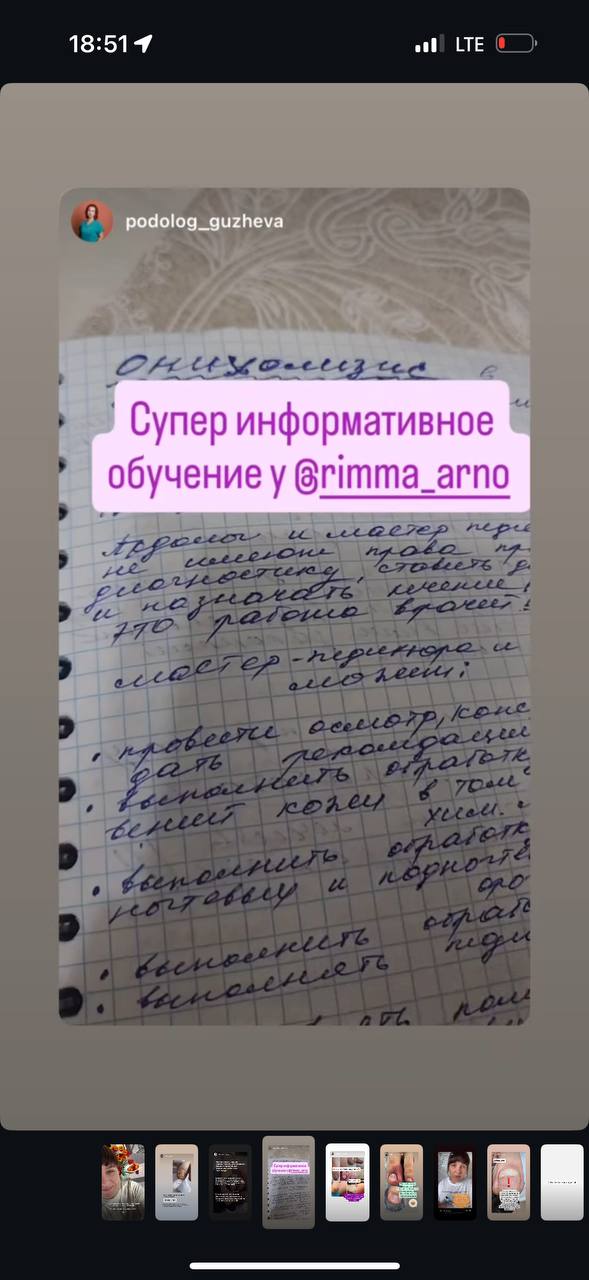 18:51
LTE
podolog_guzheva
онихолизис
Супер информативное
обучение у @rimma_arno
и мастер педи
не имеют права пр
диагностику, ставить д
и назначать лечение!
это работа врачей!
мастер-педикюра и
может:
• провести осмотр, конс
дать рекомдации
• выполнить обработк
кожи в том
хим.
• выполнить обработк
ногтевых и подногте
• выполнить обраб
• выполнять педи